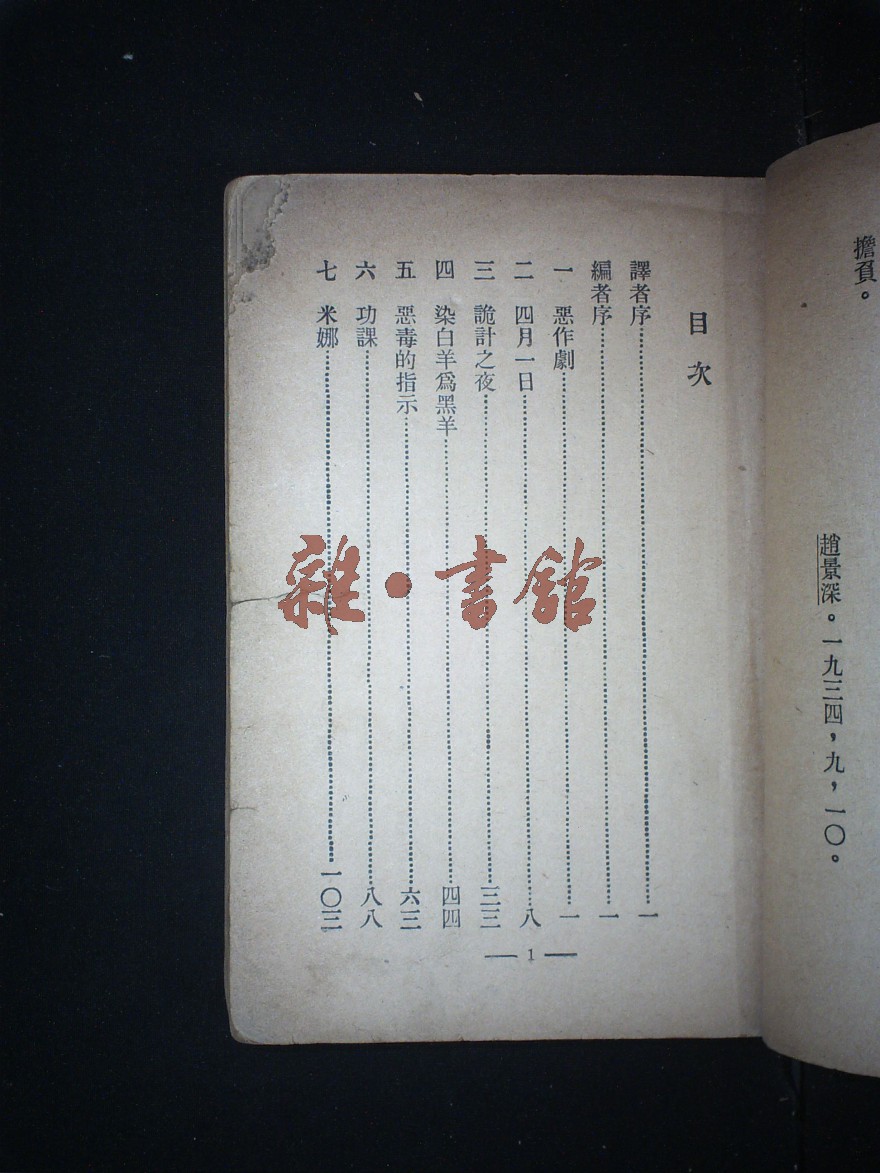 擔負。
趙景深。一九三四，九，一〇。
目次
譯者序……一
編者序……一
一 惡作劇……一
二 四月一日……八
三 詭計之夜……三三
四 染白羊爲黑羊……四四
五 惡毒的指示……六三
六 功課……八八
七 米娜……一〇三
— 1 —
雜·書館